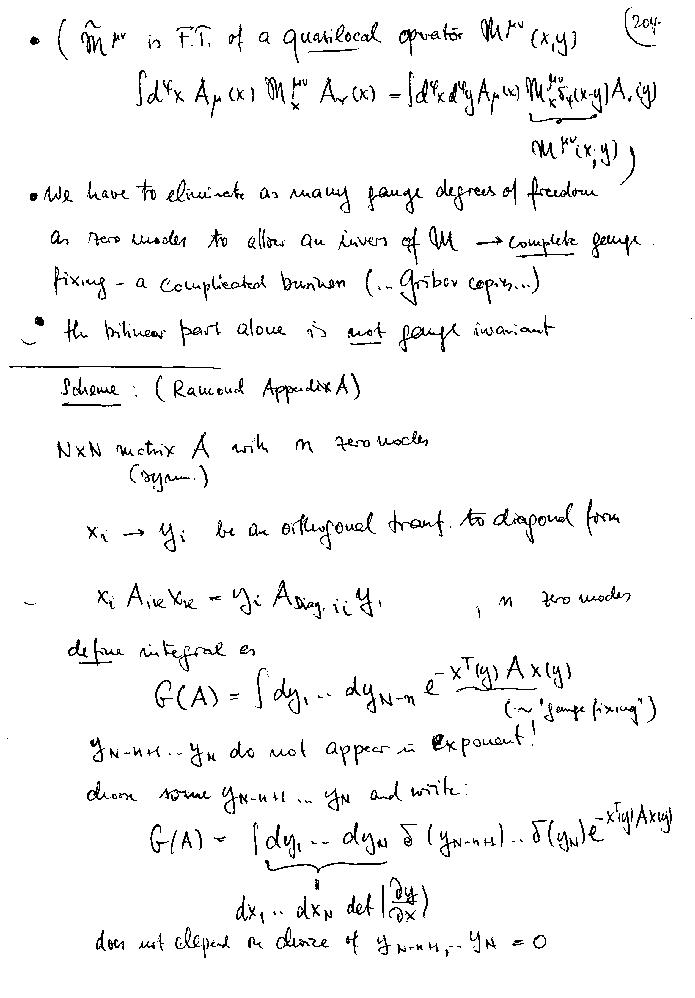 204
• ( M̃^{μν} is F.T. of a quasilocal operator M^{μν}(x,y)
∫d⁴x A_μ(x) M_x^{μν} A_ν(x) = ∫d⁴x d⁴y A_μ(x) M_x^{μν} δ_4(x-y) A_ν(y)
M^{μν}(x;y) )
• We have to eliminate as many gauge degrees of freedom
as zero modes to allow an invers of M → complete gauge
fixing - a complicated business (.. Gribov copies...)
• the bilinear part alone is not gauge invariant
Scheme : (Ramond Appendix A)
N×N matrix A with n zero modes
(symm.)
x_i → y_i be an orthogonal transf. to diagonal form
x_i A_{ik} x_k = y_i A_{Diag. ii} y_i , n zero modes
define integral as
G(A) = ∫ dy_1 .. dy_{N-n} e^{-x^T(y) A x(y)}
(~ "gauge fixing")
y_{N-n+1} .. y_N do not appear in exponent!
choose some y_{N-n+1} .. y_N and write:
G(A) = ∫ dy_1 .. dy_N δ(y_{N-n+1}) .. δ(y_N) e^{-x^T(y) A x(y)}
dx_1 .. dx_N det |∂y/∂x|
does not depend on choice of y_{N-n+1}, .. y_N = 0